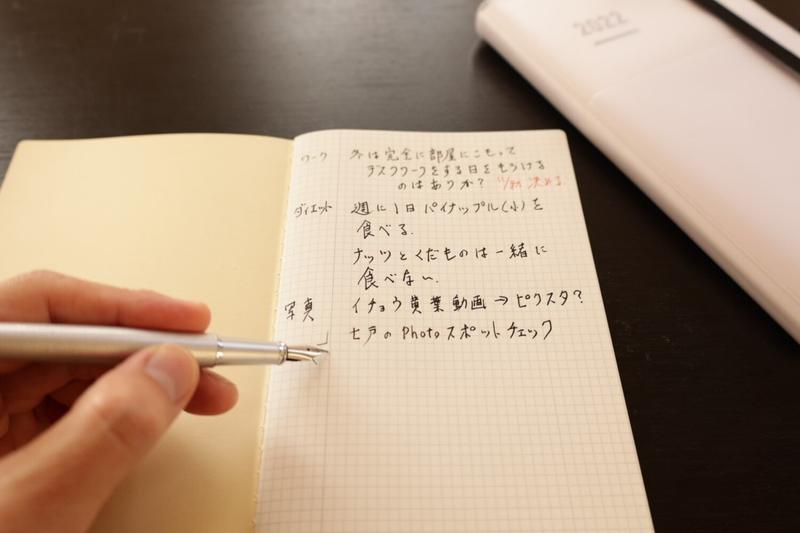 2022
ワーク 冬は完全に部屋にこもって
デスクワークをする日をもうける
のはありか? 11/末 決める
ダイエット 週に1日パイナップル(小)を
食べる.
ナッツとくだものは一緒に
食べない.
写真 イチョウ黄葉動画→ピクスタ?
七戸のPhotoスポットチェック